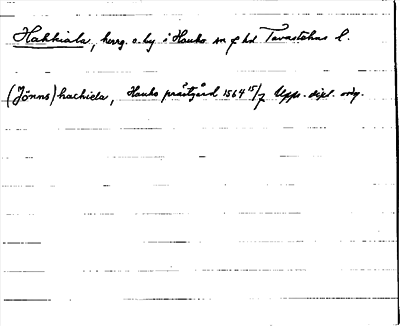 Hakkiala, herrg. o. by i Hauho sn f hd Tavastehus l.
(Jönns) hackiela, Hauho prästgård 1564 15/7 Upps. dipl. orig.